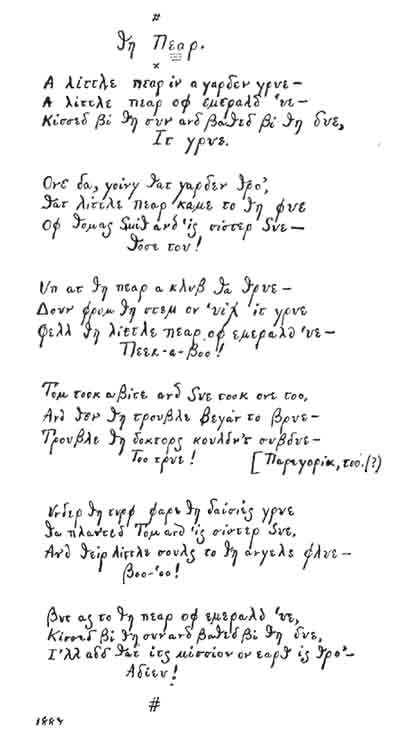 #
θη Πεαρ.
×
Α λίττλε πεαρ ίν α γαρδεν γρυε —
Α λίττλε πεαρ οφ εμεραλδ ‛υε —
Κίσσεδ βί θη συν ανδ βαθεδ βί θη δυε,
Ίτ γρυε.
Ονε δα, γοίνγ θατ γαρδεν θρο’,
θατ λίττλε πεαρ καμε το θη φυε
Οφ θομας Σμίθ ανδ ‛ίς σίστερ Συε —
θοσε του!
Υπ ατ θη πεαρ α κλυβ θα θρυε —
Δουν φρομ θη στεμ ον ‛υίχ ίτ γρυε
Φελλ θη λίττλε πεαρ οφ εμεραλδ ‛υε —
Πεεκ-α-βοο!
Τομ τοοκ α βίτε ανδ Συε τοοκ ονε τοο,
Ανδ θεν θη τρουβλε βεγαν το βρυε —
Τρουβλε θη δοκτορς κουλδν’τ συβδυε —
Τοο τρυε!
[Παρεγορίκ, τοο.(?)
Υνδερ θη τυρφ φαρε θη δαίσίες γρυε
θα πλαντεδ Τομ ανδ ‛ίς σίστερ Συε,
Ανδ θείρ λίττλε σουλς το θη ανγελς φλυε —
Βοο-‛οο!
Βυτ ας το θη πεαρ οφ εμεραλδ ‛υε,
Κίσσεδ βί θη συν ανδ βαθεδ βί θη δυε,
Ι’λλ αδδ θατ ίτς μίσσίον ον εαρθ ίς θρο’ —
Αδίευ!
#
1884